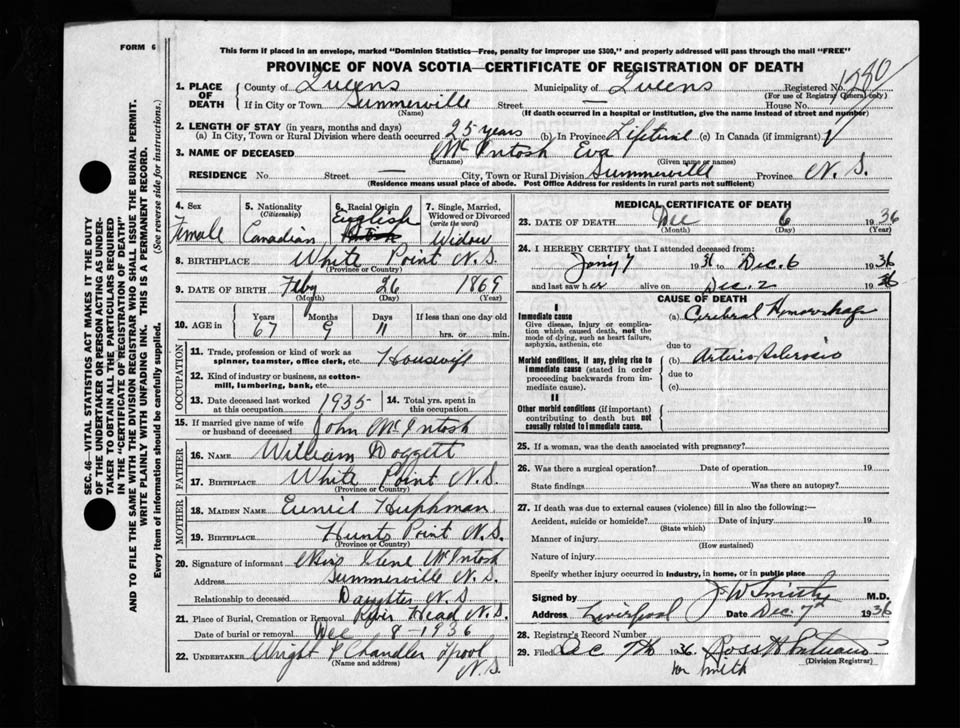 FORM 6
This form if placed in an envelope, marked "Dominion Statistics—Free, penalty for improper use $300," and properly addressed will pass through the mail "FREE"
PROVINCE OF NOVA SCOTIA—CERTIFICATE OF REGISTRATION OF DEATH
1. PLACE OF DEATH County of Queens Municipality of Queens Registered No.
(For use of Registrar General only)
If in City or Town Summerville Street — House No.
(Name) (If death occurred in a hospital or institution, give the name instead of street and number)
2. LENGTH OF STAY (in years, months and days)
(a) In City, Town or Rural Division where death occurred 25 years (b) In Province Lifetime (c) In Canada (if immigrant)
3. NAME OF DECEASED McIntosh Eva
(Surname) (Given name or names)
RESIDENCE No. Street — City, Town or Rural Division Summerville Province N.S.
(Residence means usual place of abode. Post Office Address for residents in rural parts not sufficient)
4. Sex Female
5. Nationality (Citizenship) Canadian
6. Racial Origin English
7. Single, Married, Widowed or Divorced (write the word) Widow
8. BIRTHPLACE White Point N.S.
(Province or Country)
9. DATE OF BIRTH Feby 26 1869
(Month) (Day) (Year)
10. AGE in Years 67 Months 9 Days 11 If less than one day old hrs. or min.
OCCUPATION
11. Trade, profession or kind of work as spinner, teamster, office clerk, etc. Housewife
12. Kind of industry or business, as cotton-mill, lumbering, bank, etc.
13. Date deceased last worked at this occupation 1935
14. Total yrs. spent in this occupation
15. If married give name of wife or husband of deceased John McIntosh
FATHER
16. NAME William Doggett
17. BIRTHPLACE White Point N.S.
(Province or Country)
MOTHER
18. MAIDEN NAME Huphman
19. BIRTHPLACE Hunts Point N.S.
(Province or Country)
20. Signature of informant McIntosh
Address Summerville N.S.
Relationship to deceased Daughter N.S
21. Place of Burial, Cremation or Removal Head N.S.
Date of burial or removal Dec 8 - 1936
22. UNDERTAKER Wright & Chandler L'pool N.S.
(Name and address)
MEDICAL CERTIFICATE OF DEATH
23. DATE OF DEATH Dec 6 1936
(Month) (Day) (Year)
24. I HEREBY CERTIFY that I attended deceased from:
7 1936 to Dec. 6 1936
and last saw her alive on Dec. 2 1936
CAUSE OF DEATH
I
Immediate cause
Give disease, injury or complication which caused death, not the mode of dying, such as heart failure, asphyxia, asthenia, etc
(a) Cerebral Hemorrhage
due to
Morbid conditions, if any, giving rise to immediate cause (stated in order proceeding backwards from immediate cause).
(b) Arterio Sclerosis
due to
(c)
II
Other morbid conditions (if important) contributing to death but not causally related to immediate cause.
25. If a woman, was the death associated with pregnancy?
26. Was there a surgical operation? Date of operation 19
State findings Was there an autopsy?
27. If death was due to external causes (violence) fill in also the following:—
Accident, suicide or homicide? Date of injury 19
(State which)
Manner of injury
(How sustained)
Nature of injury
Specify whether injury occurred in industry, in home, or in public place
Signed by J W Smith M.D.
Address Liverpool Date Dec. 7th 1936
28. Registrar's Record Number
29. Filed Dec 7th 1936
(Division Registrar)
Smith
SEC. 46—VITAL STATISTICS ACT MAKES IT THE DUTY OF THE UNDERTAKER OR PERSON ACTING AS UNDERTAKER TO OBTAIN ALL THE PARTICULARS REQUIRED IN THE "CERTIFICATE OF REGISTRATION OF DEATH" AND TO FILE THE SAME WITH THE DIVISION REGISTRAR WHO SHALL ISSUE THE BURIAL PERMIT.
WRITE PLAINLY WITH UNFADING INK. THIS IS A PERMANENT RECORD.
Every item of information should be carefully supplied. (See reverse side for instructions.)